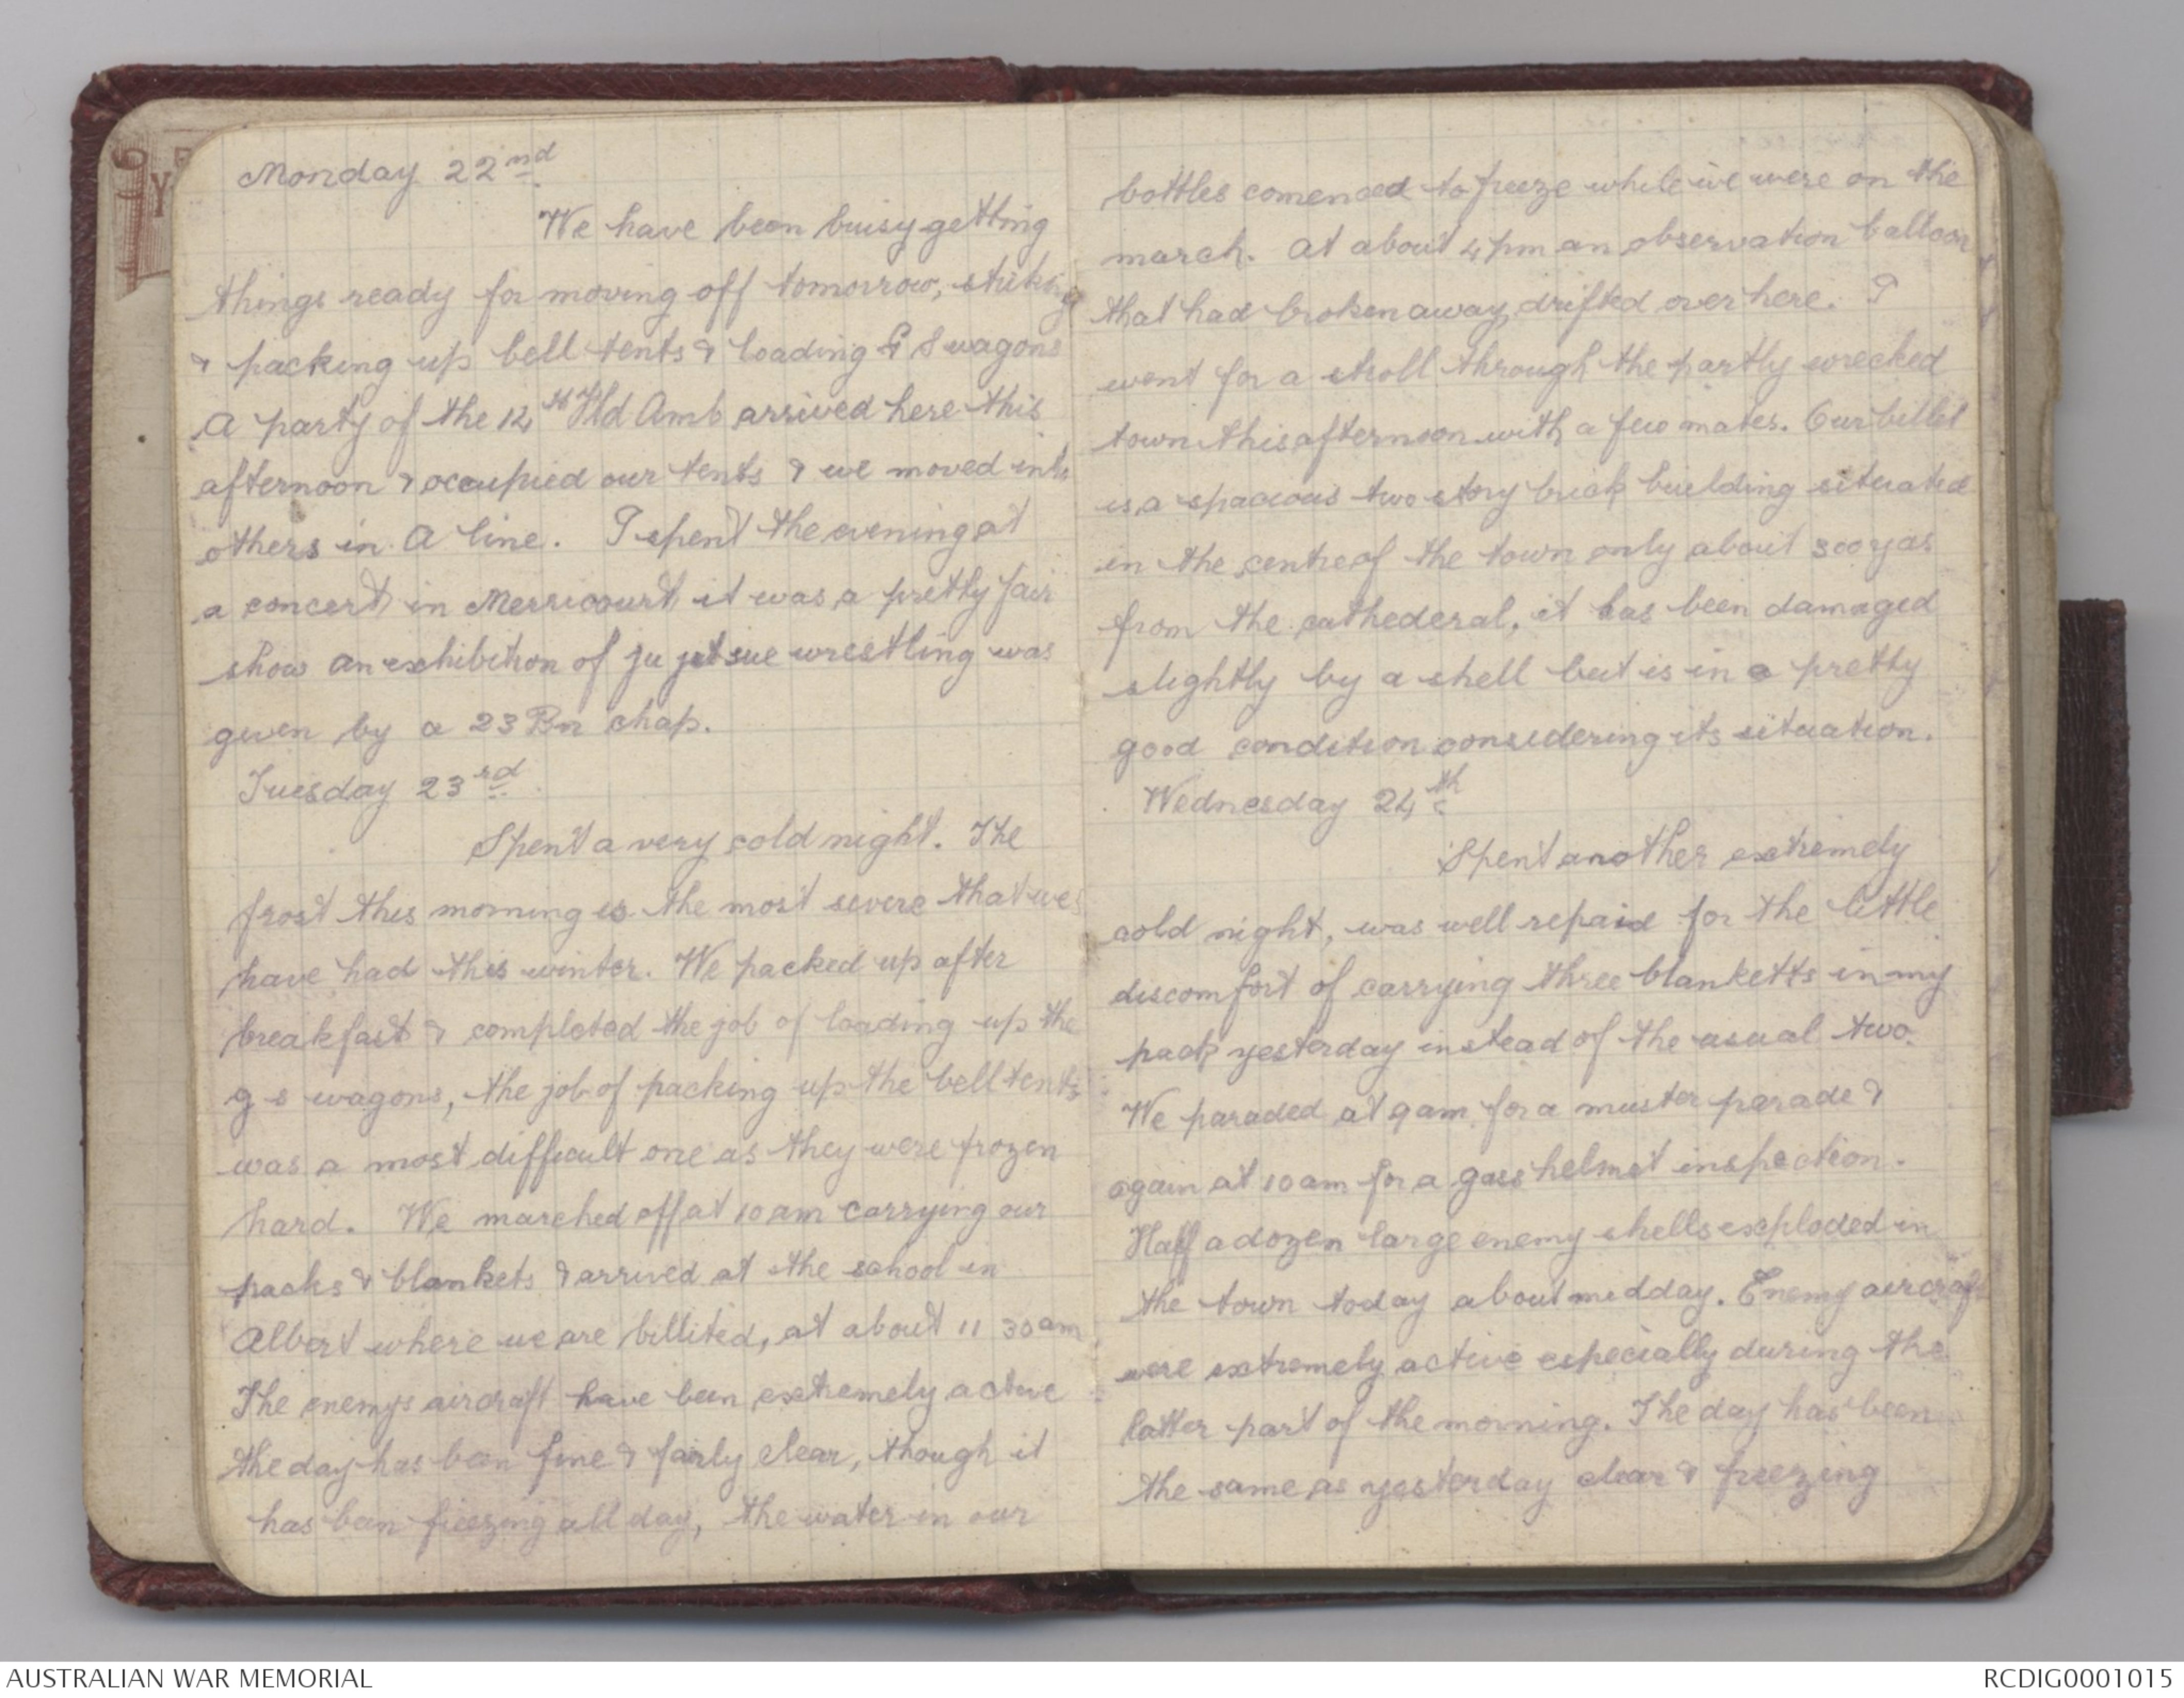 Monday 22nd
We have been buisy getting
things ready for moving off tomorrow, striking
& packing up bell tents & loading G S wagons
A party of the 14th Fld Amb arrived here this
afternoon & occupied our tents & we moved into
others in A line. I spent the evening at
a concert in Merricourt it was a pretty fair
show an exhibition of ju jutsue wrestling was
given by a 23 Bn chap.
Tuesday 23rd
Spent a very cold night. The
frost this morning is the most severe that we
have had this winter. We packed up after
breakfast & completed the job of loading up the
g s wagons, the job of packing up the bell tents
was a most difficult one as they were frozen
hard. We marched off at 10 am carrying our
packs & blankets & arrived at the school in
Albert where we are billited, at about 11 30 am
The enemys aircraft have been extremely active
the day has been fine & fairly clear, though it
has been freezing all day, the water in our
bottles comenced to freeze while we were on the
march. At about 4 pm an observation balloon
that had broken away, drifted over here. I
went for a stroll through the partly wrecked
town this afternoon with a few mates. Our billet
is a spacious two story brick building situated
in the centre of the town only about 300 yds
from the cathederal, it has been damaged
slightly by a shell but is in a pretty
good condition considering its situation.
Wednesday 24th
Spent another extremely
cold night, was well repaid for the little
discomfort of carrying three blanketts in my
pack yesterday instead of the usual two.
We paraded at 9 am for a muster parade &
again at 10 am for a gass helmet inspection.
Half a dozen large enemy shells exploded in
the town today about midday. Enemy aircraft
were extremely active especially during the
latter part of the morning. The day has been
the same as yesterday clear & freezing
AUSTRALIAN WAR MEMORIAL
RCDIG0001015